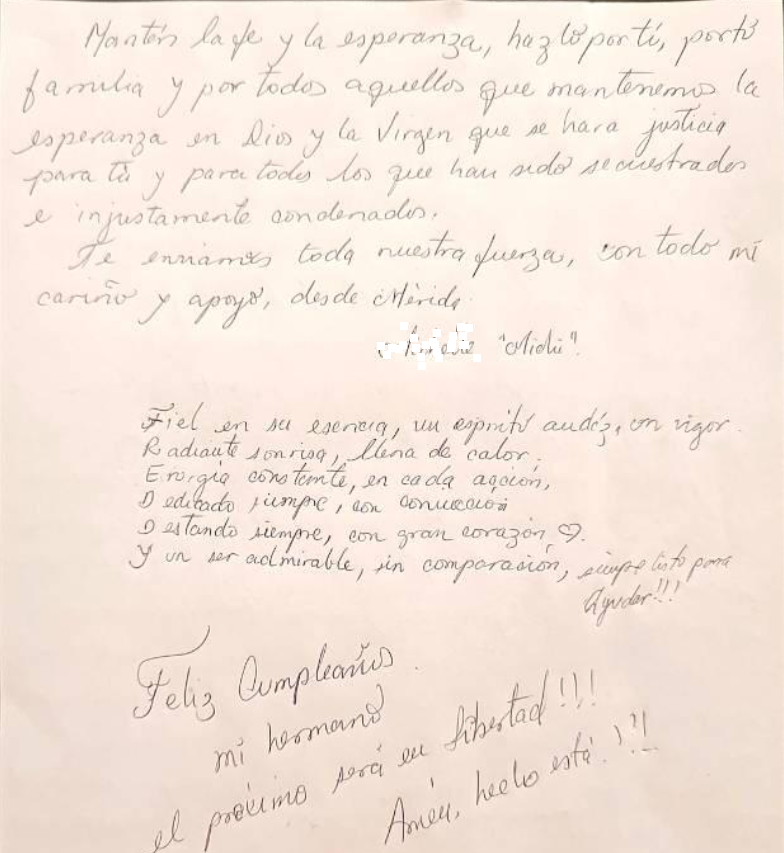 Mantén la fe y la esperanza, hazlo por tí, por tú
familia y por todos aquellos que mantenemos la
esperanza en Dios y la Virgen que se hara justicia
para tú y para todos los que han sido secuestrados
e injustamente condenados.
Te enviamos toda nuestra fuerza, con todo mi
cariño y apoyo, desde Mérida.
"Michi".
Fiel en su esencia, un espiritú audáz, con vigor.
Radiante sonrisa, llena de calor.
Energía constante, en cada acción,
Dedicado siempre, con convicción
Destando siempre, con gran corazón ♡.
Y un ser admirable, sin comparación, siempre listo para
Ayudar!!!
Feliz Cumpleaños.
mi hermano
el próximo será en libertad!!!
Amén, hecho está.!!!